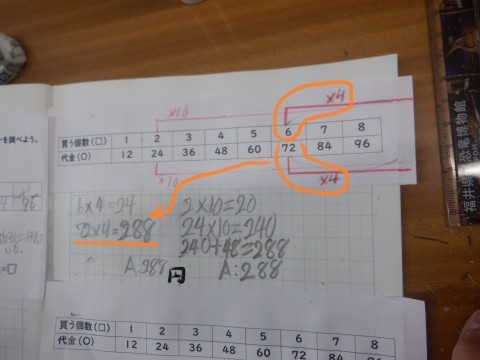 を調べよう。
×10
×4
買う個数(□) 1 2 3 4 5 6 7 8
代金(○) 12 24 36 48 60 72 84 96
×10
×4
6×4=24
72×4=288
A:288
円
2×10=20
24×10=240
240+48=288
A:288
買う個数(□) 1 2 3 4 5 6 7 8
代金(○) 12 24 36 48 60 72 84 96
恐竜博物館